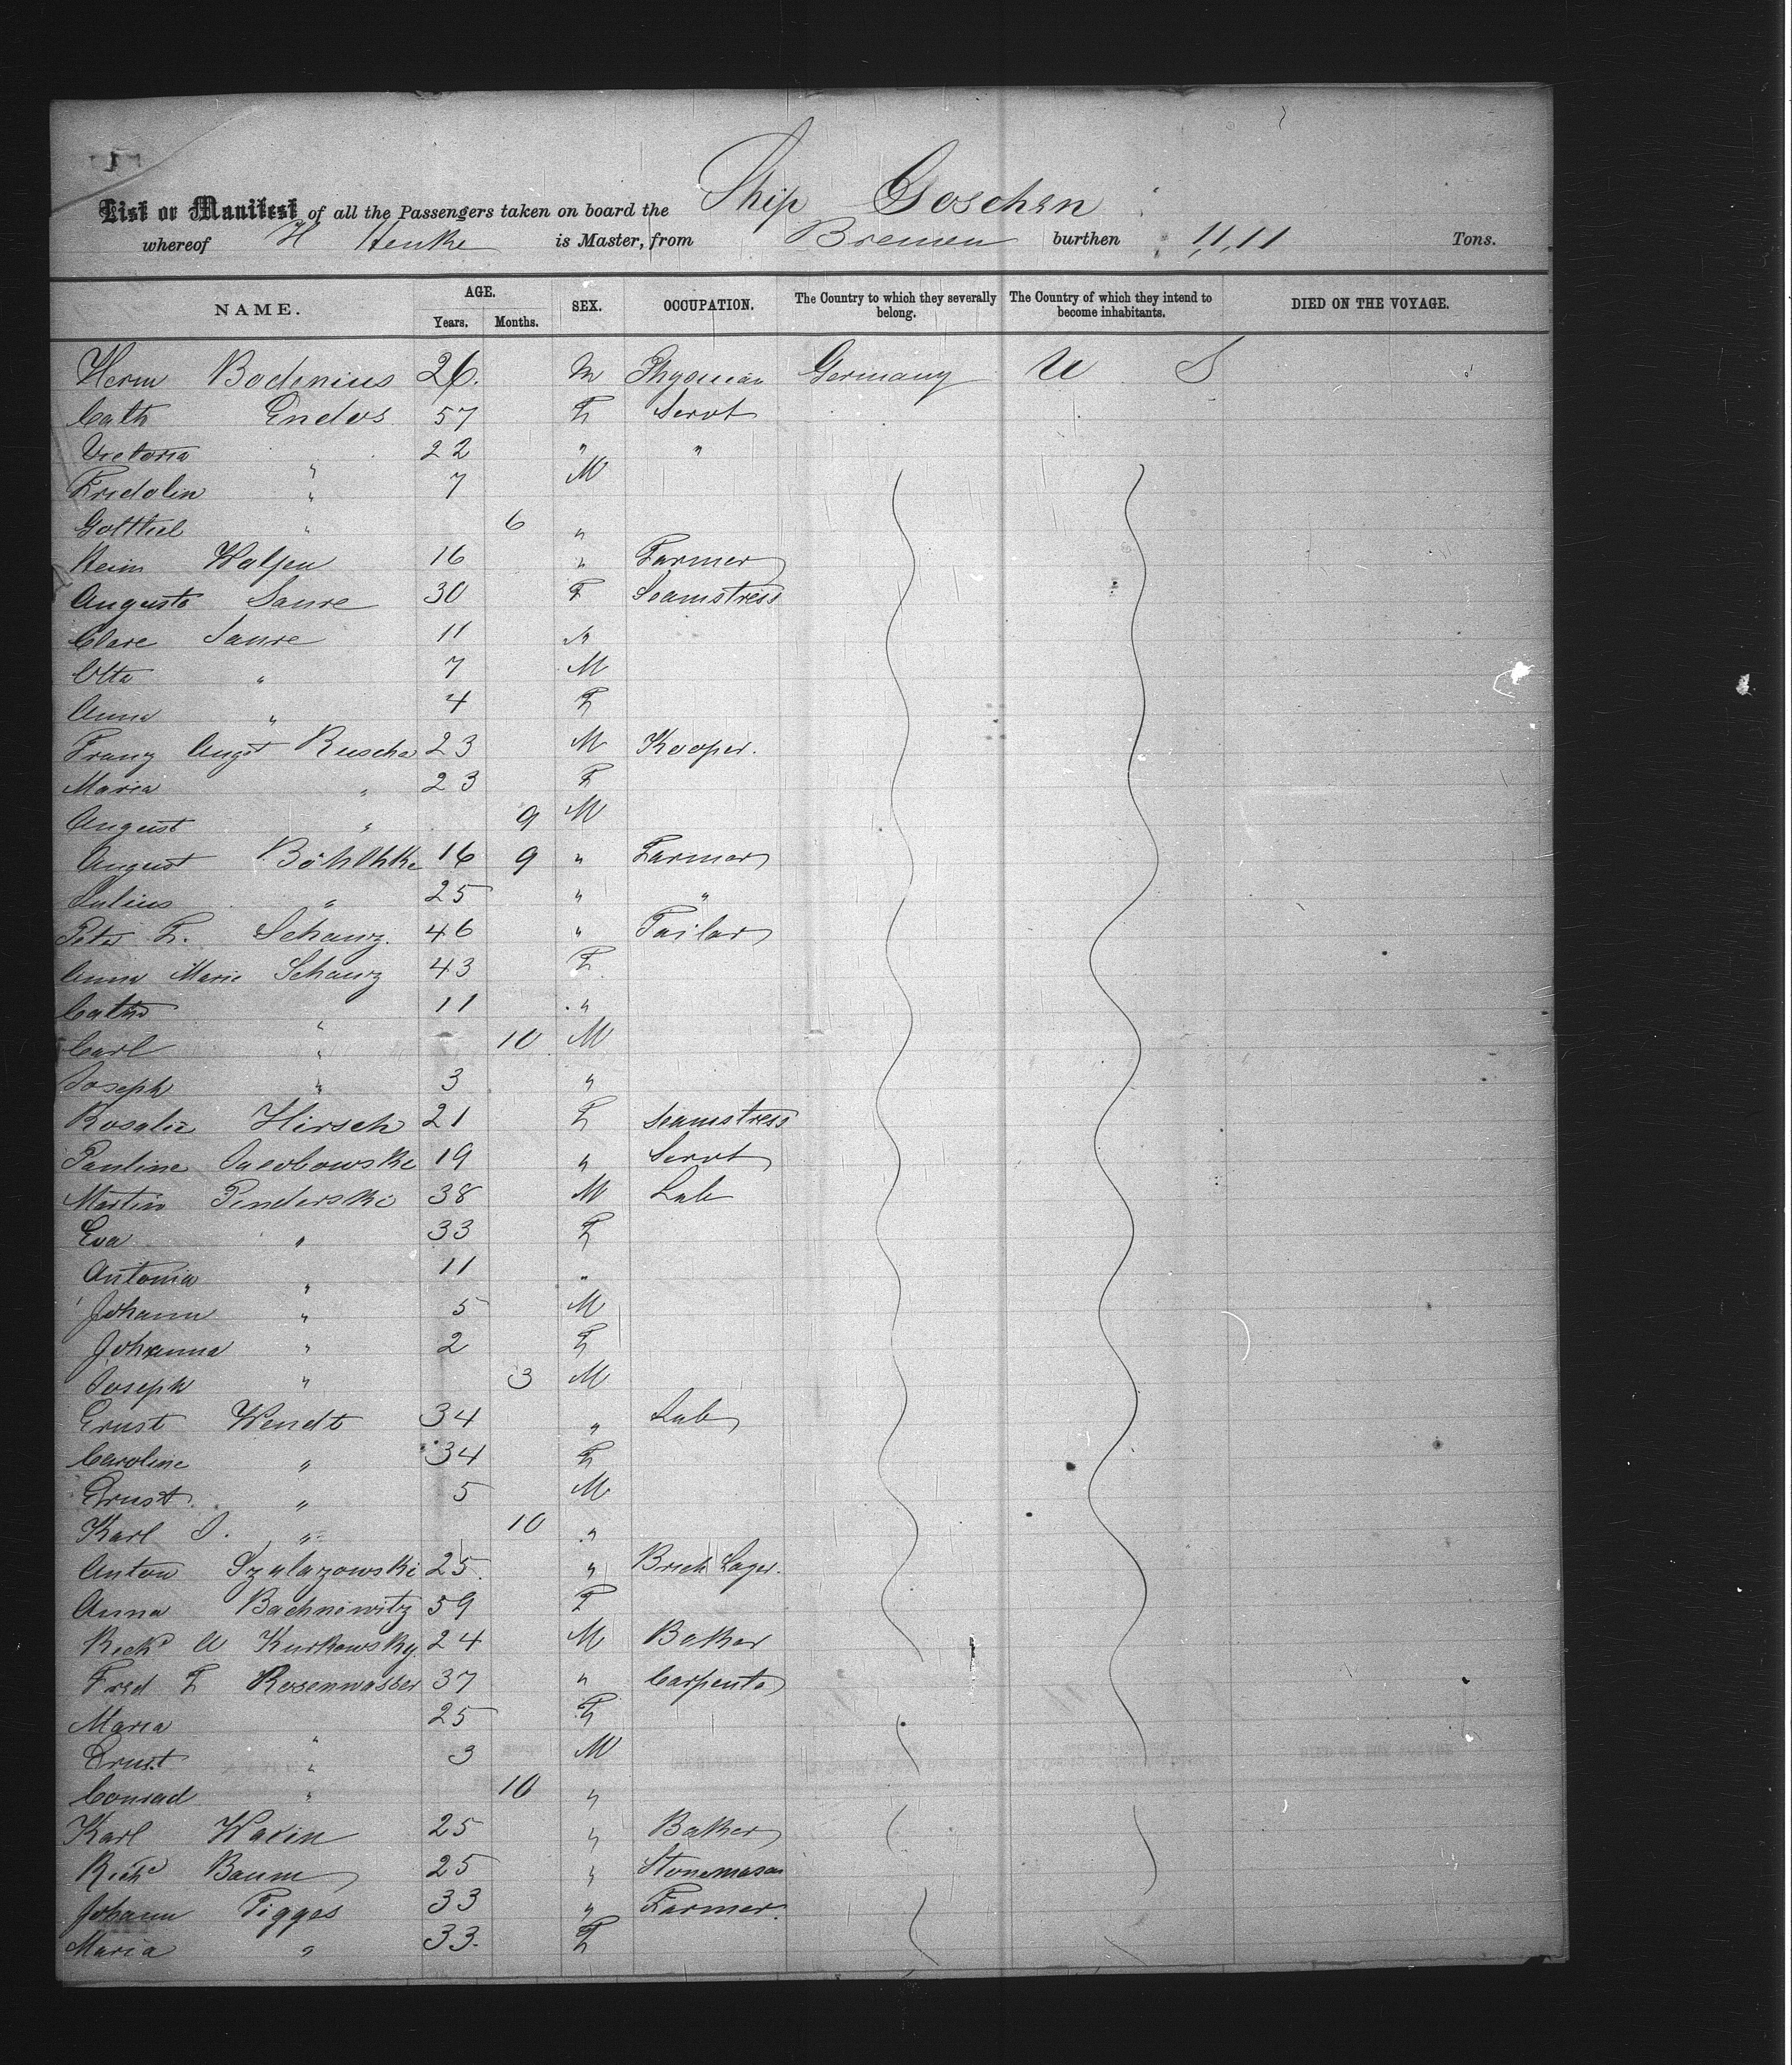 List or Manifest of all the Passengers taken on board the Ship Goschen
whereof H Henke is Master, from Bremen burthen 11,11 Tons.
NAME. AGE. Years. Months. SEX. OCCUPATION. The Country to which they severally belong. The Country of which they intend to become inhabitants. DIED ON THE VOYAGE.
Herm Bodenius 26. M Physician Germany U S
Cath Endos 57 F Servt
Victoria " 22 " "
Fridolin " 7 M
Gottlieb " 6 "
Hein 16 " Farmer
Auguste Saure 30 F Seamstress
Clare Saure 11 "
Otto " 7 M
Anna " 4 F
Franz Augst Ruscha 23 M Kooper.
Maria " 23 F
August " 9 M
August Böhlhke 16 9 " Farmer
Julius " 25 " "
Peter F. Schanz. 46 " Tailor
Anna Marie Schanz 43 F
Cath " 11 "
Carl " 10 M
Joseph " 3 "
Rosalie Hirsch 21 F seamstress
Pauline Jacobowske 19 " Servt
Martin Penderski 38 M Lab
Eva " 33 F
Antonia " 11 "
Johann " 5 M
Johanna " 2 F
Joseph " 3 M
Ernst Wendt 34 " Lab
Caroline " 34 F
Ernst " 5 M
Karl J. " 10 "
Anton Szalazowski 25. " Brick Layer.
Anna Bachniwitz 59 F
Richd A Kurkowsky. 24 M Baker
Fred F Rosenwasser 37 " Carpenter
Maria " 25 F
Ernst " 3 M
Conrad " 10 "
Karl Wavin 25 " Baker
Richd Baum 25 " Stonemason
Johann Pigges 33 " Farmer.
Maria " 33. F